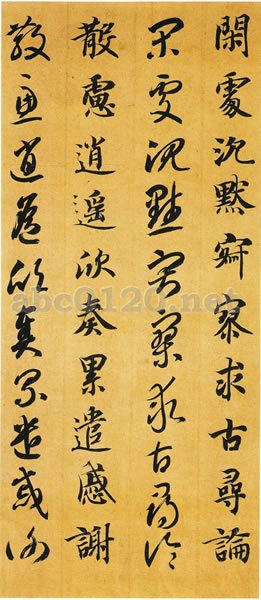 閑處沉默寂寥求古尋論
閑處沉默寂寥求古尋論
散慮逍遥欣奏累遣慼謝
散慮逍遥欣奏累遣慼謝
abc0120.net